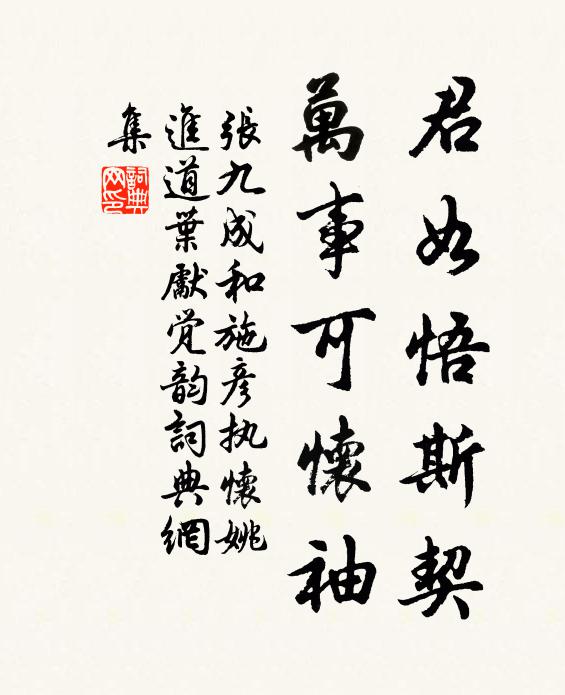 君如悟斯契
萬事可懷袖
張九成和施彥执懷姚
進道葉獻觉韵詞典網
集
詞典网印